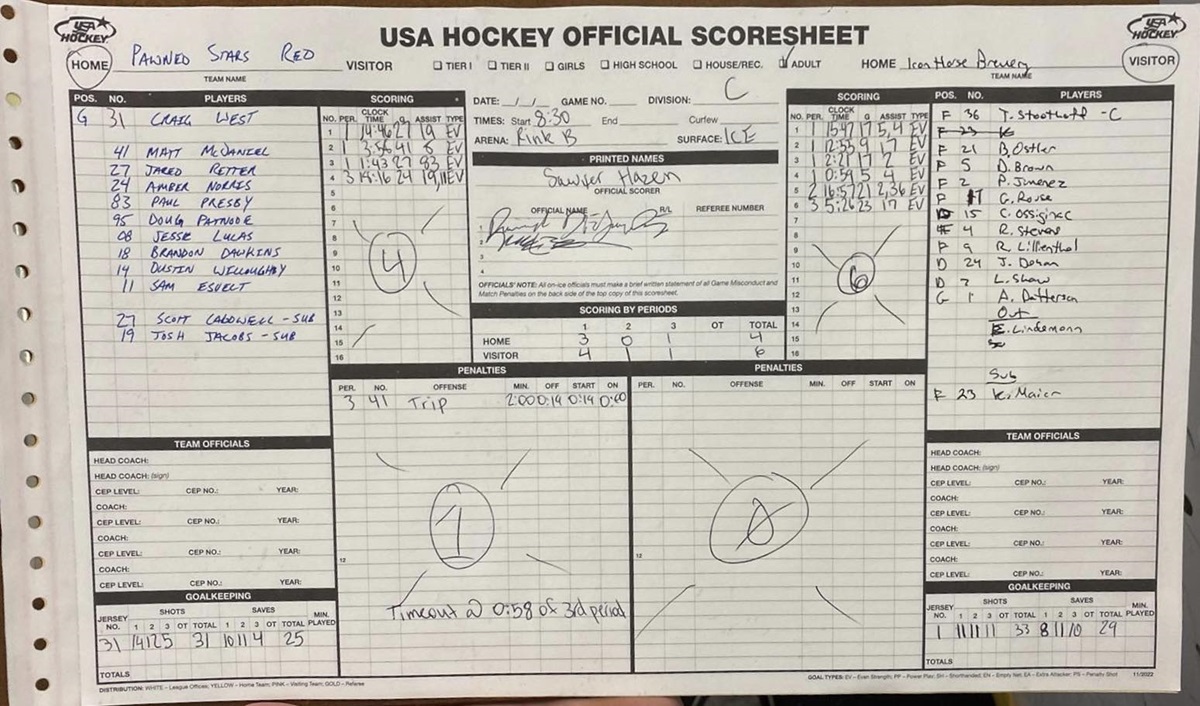 USA HOCKEY
USA HOCKEY OFFICIAL SCORESHEET
USA HOCKEY
HOME PAWNED STARS RED VISITOR
TEAM NAME
☐ TIER I ☐ TIER II ☐ GIRLS ☐ HIGH SCHOOL ☐ HOUSE/REC. ☑ ADULT
HOME Iron Horse Brewery VISITOR
TEAM NAME
POS. NO. PLAYERS
G 31 CRAIG WEST
41 MATT McDANIEL
27 JARED RETTER
24 AMBER NORRIS
83 PAUL PRESBY
95 DOUG PATNODE
08 JESSE LUCAS
18 BRANDON DAWKINS
14 DUSTIN WILLOUGHBY
11 SAM ESVELT
27 SCOTT CALDWELL - SUB
19 JOSH JACOBS - SUB
SCORING
NO. PER. CLOCK TIME G ASSIST TYPE
1 1 14:46 27 19 EV
2 1 3:56 41 8 EV
3 1 1:43 27 83 EV
4 3 15:16 24 19,11 EV
5
6
7
8
9
10
11
12
13
14
15
16
4
DATE: __/__/__ GAME NO. ____ DIVISION: C
TIMES: Start 8:30 End Curfew
ARENA: Rink B SURFACE: ICE
PRINTED NAMES
Sawyer Hazen
OFFICIAL SCORER
OFFICIAL NAME R/L REFEREE NUMBER
1
2
3
4
OFFICIALS' NOTE: All on-ice officials must make a brief written statement of all Game Misconduct and
Match Penalties on the back side of the top copy of this scoresheet.
SCORING BY PERIODS
1 2 3 OT TOTAL
HOME 3 0 1 4
VISITOR 4 1 1 6
SCORING
NO. PER. CLOCK TIME G ASSIST TYPE
1 1 15:47 17 5,4 EV
2 1 12:53 9 17 EV
3 1 2:21 17 2 EV
4 1 0:59 5 4 EV
5 2 16:57 21 2,36 EV
6 3 5:26 23 17 EV
7
8
9
10
11
12
13
14
15
16
6
POS. NO. PLAYERS
F 36 T. Stoothoff - C
F 23 K
F 21 B. Ostler
F 5 D. Brown
F 2 P. Jimenez
F 17 G. Rouse
D 15
F 4 R. Stevens
F 9 R. Lillenthal
D 24 J. Doran
D 7 L. Shaw
G 1 A. Patterson
Out
E. Lindemann
Sub
F 23 K. Maier
PENALTIES
PER. NO. OFFENSE MIN. OFF START ON
3 41 Trip 2:00 0:14 0:14 0:00
12
1
Timeout @ 0:58 of 3rd period
PENALTIES
PER. NO. OFFENSE MIN. OFF START ON
12
0
TEAM OFFICIALS
HEAD COACH:
HEAD COACH: (sign)
CEP LEVEL: CEP NO.: YEAR:
COACH:
CEP LEVEL: CEP NO.: YEAR:
COACH:
CEP LEVEL: CEP NO.: YEAR:
COACH:
CEP LEVEL: CEP NO.: YEAR:
GOALKEEPING
SHOTS SAVES
JERSEY NO. 1 2 3 OT TOTAL 1 2 3 OT TOTAL MIN. PLAYED
31 14 12 5 31 10 11 4 25
TOTALS
TEAM OFFICIALS
HEAD COACH:
HEAD COACH: (sign)
CEP LEVEL: CEP NO.: YEAR:
COACH:
CEP LEVEL: CEP NO.: YEAR:
COACH:
CEP LEVEL: CEP NO.: YEAR:
COACH:
CEP LEVEL: CEP NO.: YEAR:
GOALKEEPING
SHOTS SAVES
JERSEY NO. 1 2 3 OT TOTAL 1 2 3 OT TOTAL MIN. PLAYED
1 11 11 11 33 8 11 10 29
TOTALS
DISTRIBUTION: WHITE – League Offices; YELLOW – Home Team; PINK – Visiting Team; GOLD – Referee
GOAL TYPES: EV – Even Strength; PP – Power Play; SH – Shorthanded; EN – Empty Net; EA – Extra Attacker; PS – Penalty Shot 11/2022